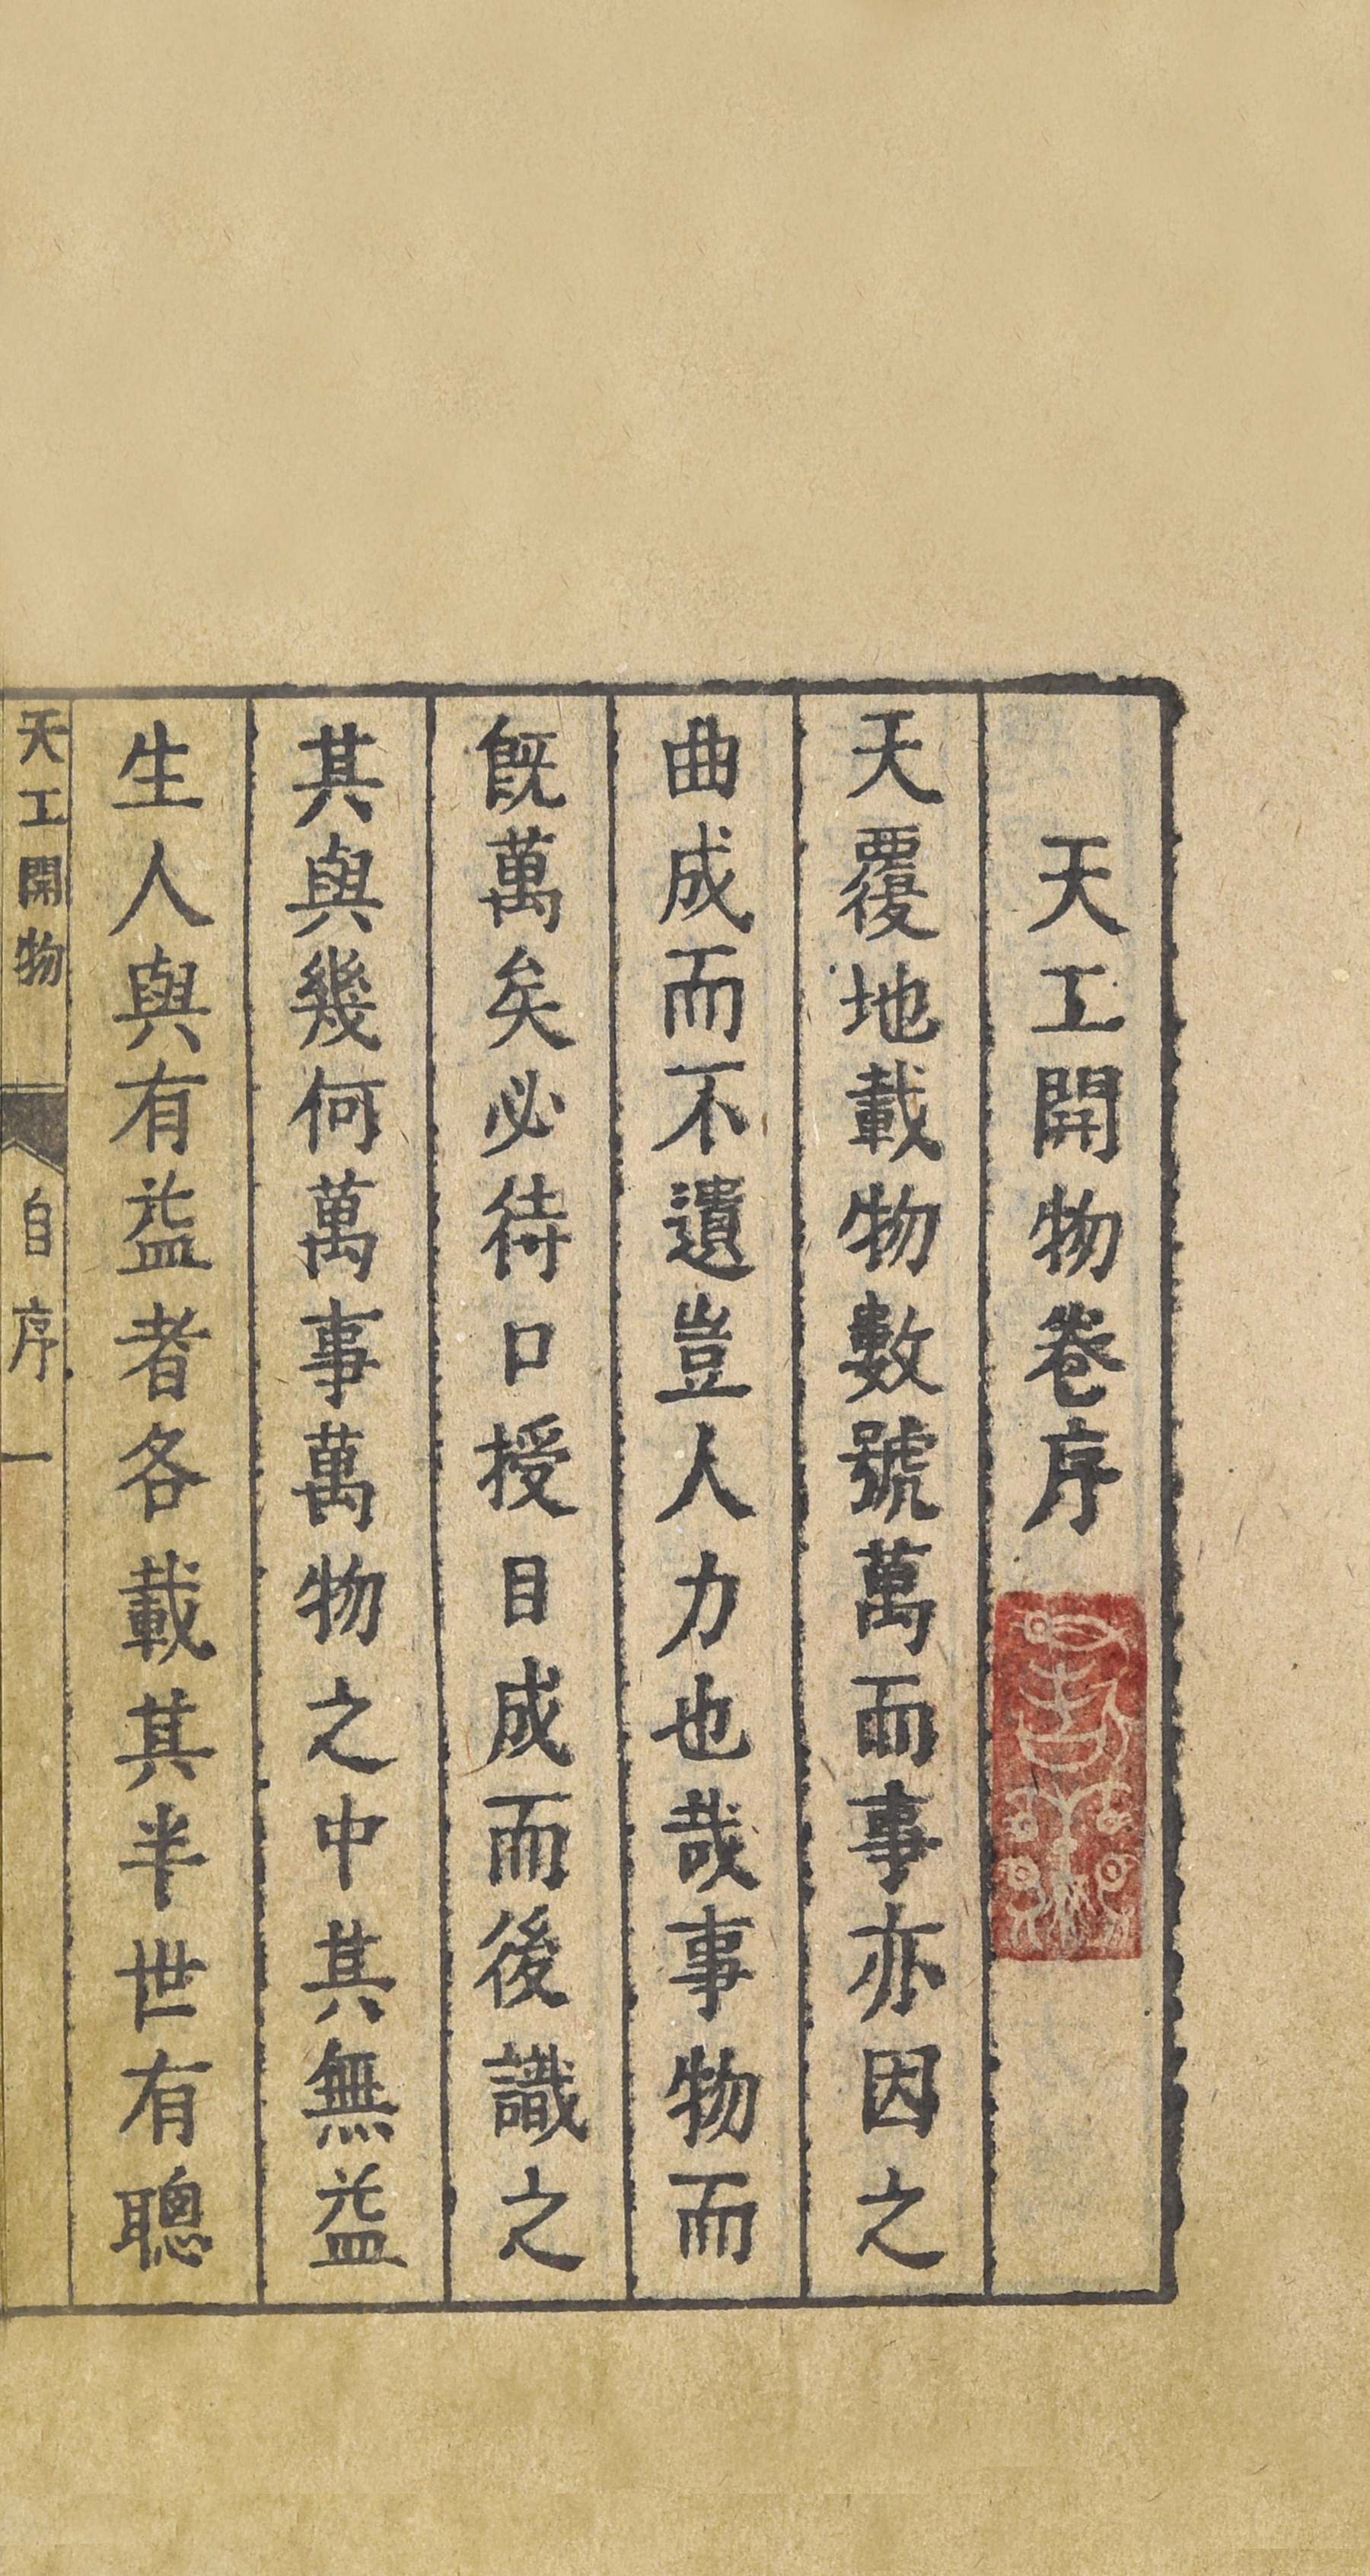 天工開物卷序
天覆地載物數號萬而事亦因之
曲成而不遺豈人力也哉事物而
旣萬矣必待口授目成而後識之
其與幾何萬事萬物之中其無益
生人與有益者各載其半世有聰
天工開物 自序 一